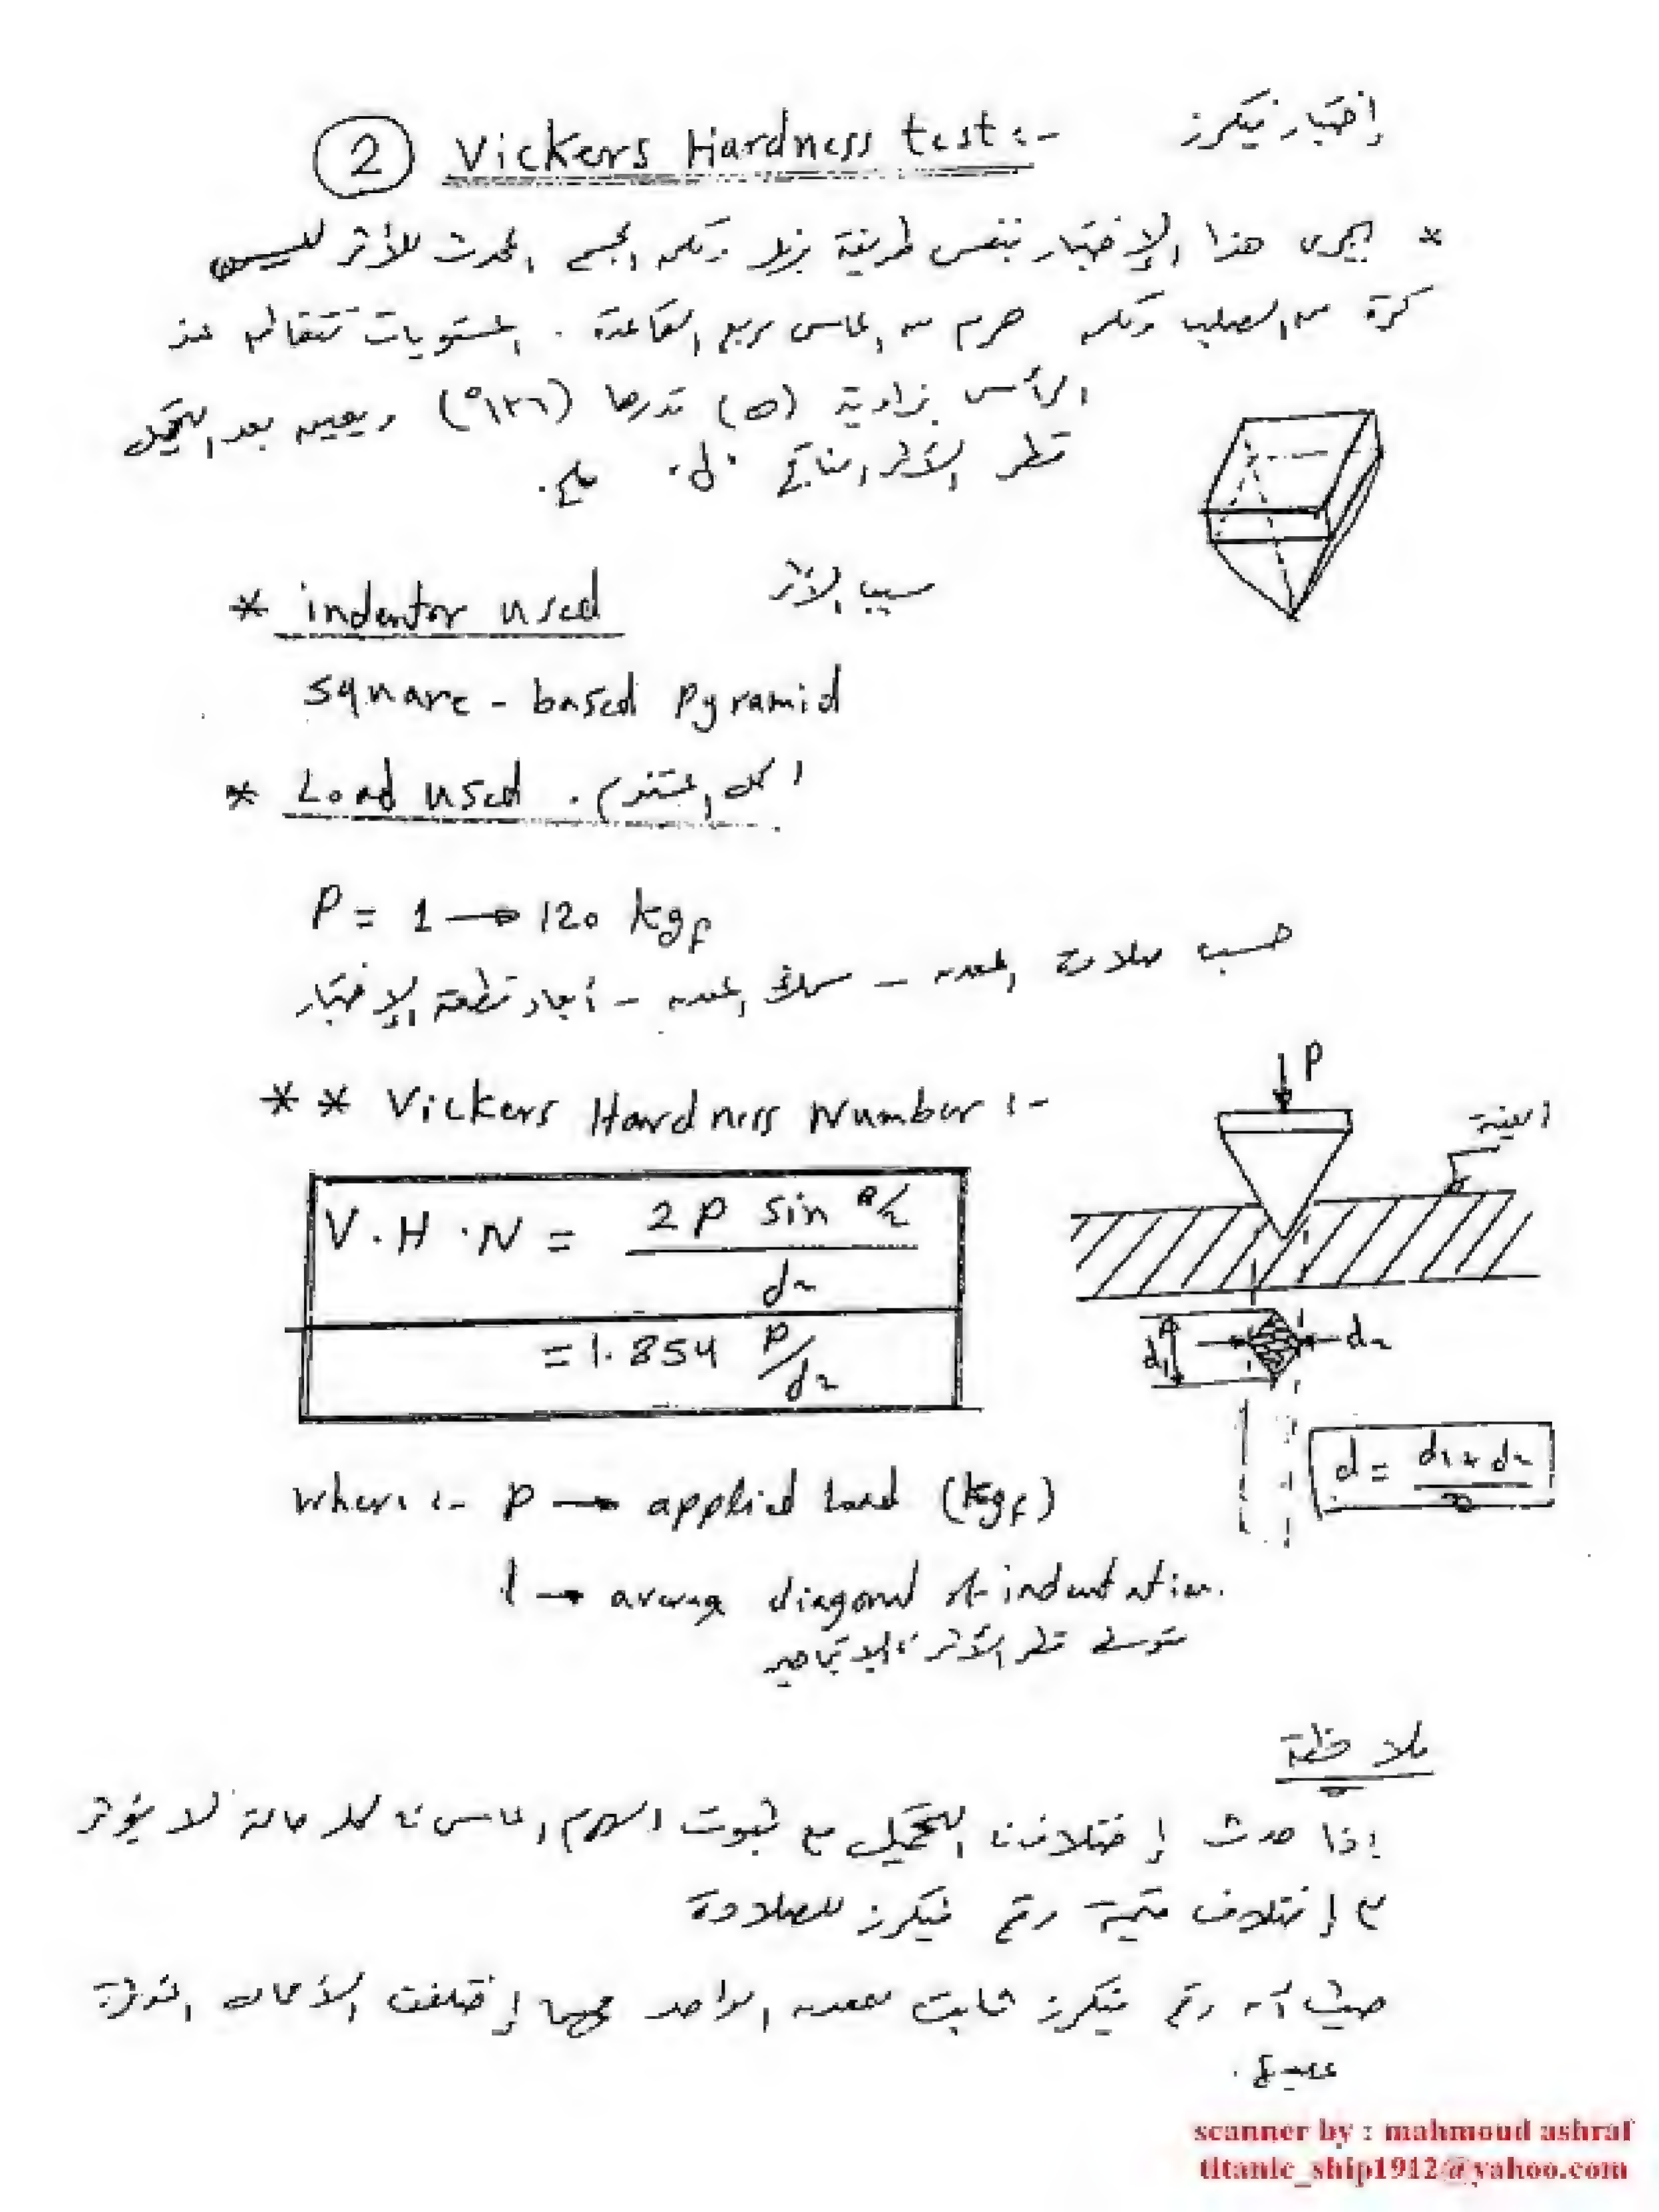 إختبار فيكرز
② Vickers Hardness test :-
* يجرى هذا الإختبار بنفس طريقة برنل ولكن الجسم المحدث للأثر ليس
كرة من الصلب ولكن هرم من الماس مربع القاعدة . المستويات تتقابل عند
الرأس بزاوية (θ) قدرها (١٣٦°) ويعين بعد التحميل
قطر الأثر الناتج "d" مم.
* indentor used سبب الأثر
square - based pyramid
* Load used . الحمل المستخدم
P = 1 → 120 kgf
حسب صلادة المعدن - سمك المعدن - أبعاد قطعة الإختبار
* * Vickers Hardness Number :-
V.H.N = 2 P sin θ/2
d2
= 1.854 P/d2
P
العينة
d1
d2
d = d1 + d2
2
where :- P → applied load (kgf)
d → average diagonal of indentation.
متوسط قطر الأثر
ملاحظة
إذا حدث إختلاف فى التحميل مع ثبوت الهرم الماسى فى كل حالة لا يؤثر
فى إختلاف قيمة رقم فيكرز للصلادة
حيث أن رقم فيكرز ثابت للمعدن الواحد مهما إختلفت الأحمال المؤثرة
عليه.
scanner by : mahmoud ashraf
titanic_ship1912@yahoo.com